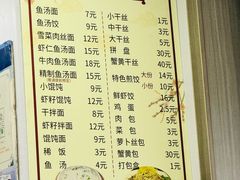 鱼汤面 7元
鱼汤饺 9元
雪菜肉丝面 12元
虾仁鱼汤面 15元
牛肉鱼汤面 18元
精制鱼汤面 15元
小馄饨 9元
虾籽馄饨 9元
干拌面 8元
虾籽面 9元
稀饭 3元
鱼汤 4元
小干丝 1元
中干丝 3元
大干丝 5元
拼盘 30元
蟹黄干丝 40元
特色煎饺 大份 14元
小份 10元
鲜虾饺 6元
鸡蛋 2元
肉包 2元
菜包 2元
萝卜丝包 2元
蟹黄包 30元
打包盒 1元